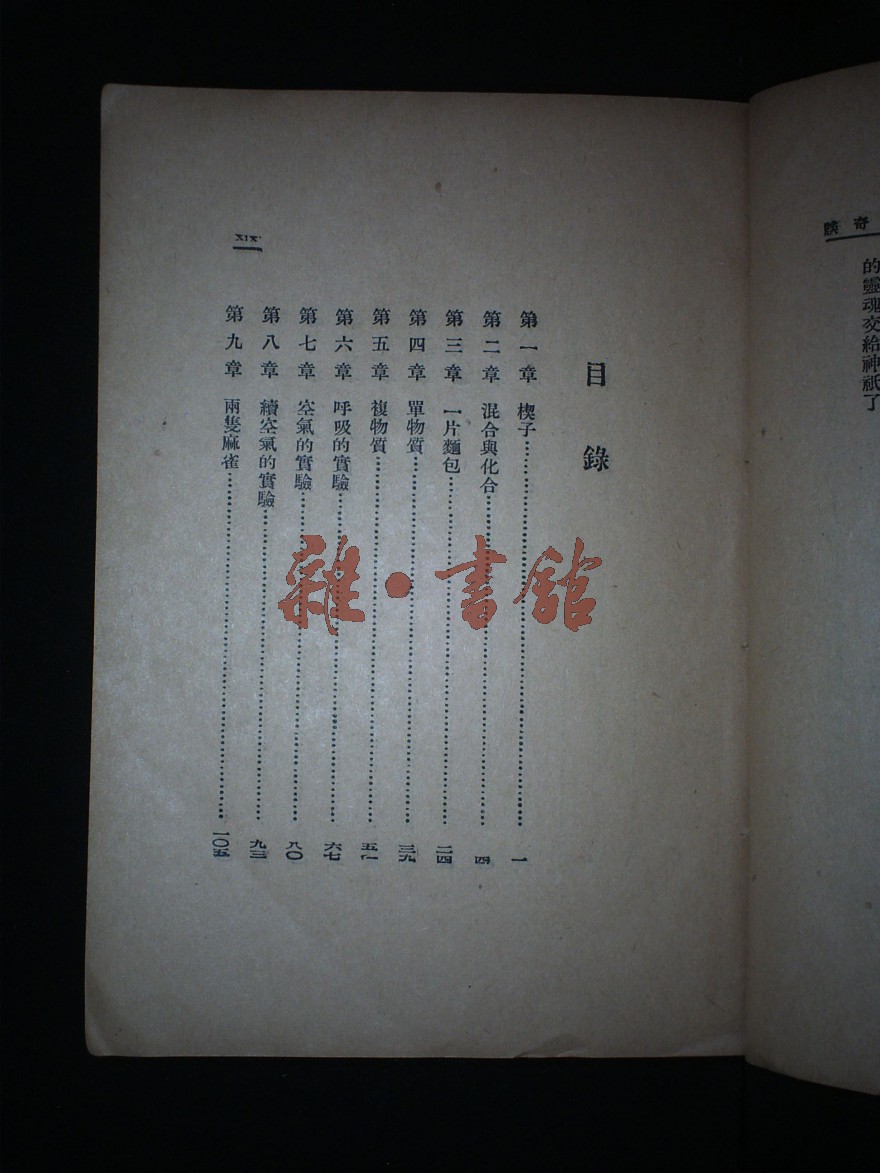 奇談
的靈魂交給神祇了
目錄
第一章 楔子 一
第二章 混合與化合 四
第三章 一片麵包 二四
第四章 單物質 三九
第五章 複物質 五一
第六章 呼吸的實驗 六七
第七章 空氣的實驗 八〇
第八章 續空氣的實驗 九三
第九章 兩隻麻雀 一〇五
XIX
雜·書館